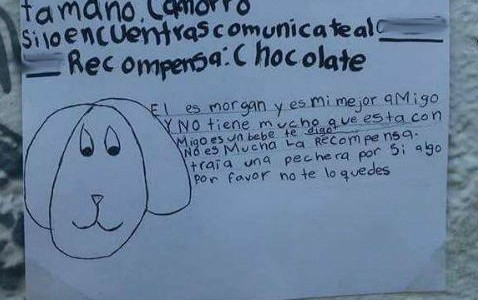 tamaño. Cachorro
Si lo encuentras comunicate al
Recompensa: Chocolate
El es morgan y es mi mejor aMigo
Y NO tiene mucho que esta con
Migo es un bebe te digo
No es Mucha La Recompensa.
traia una pechera por si algo
por favor no te lo quedes